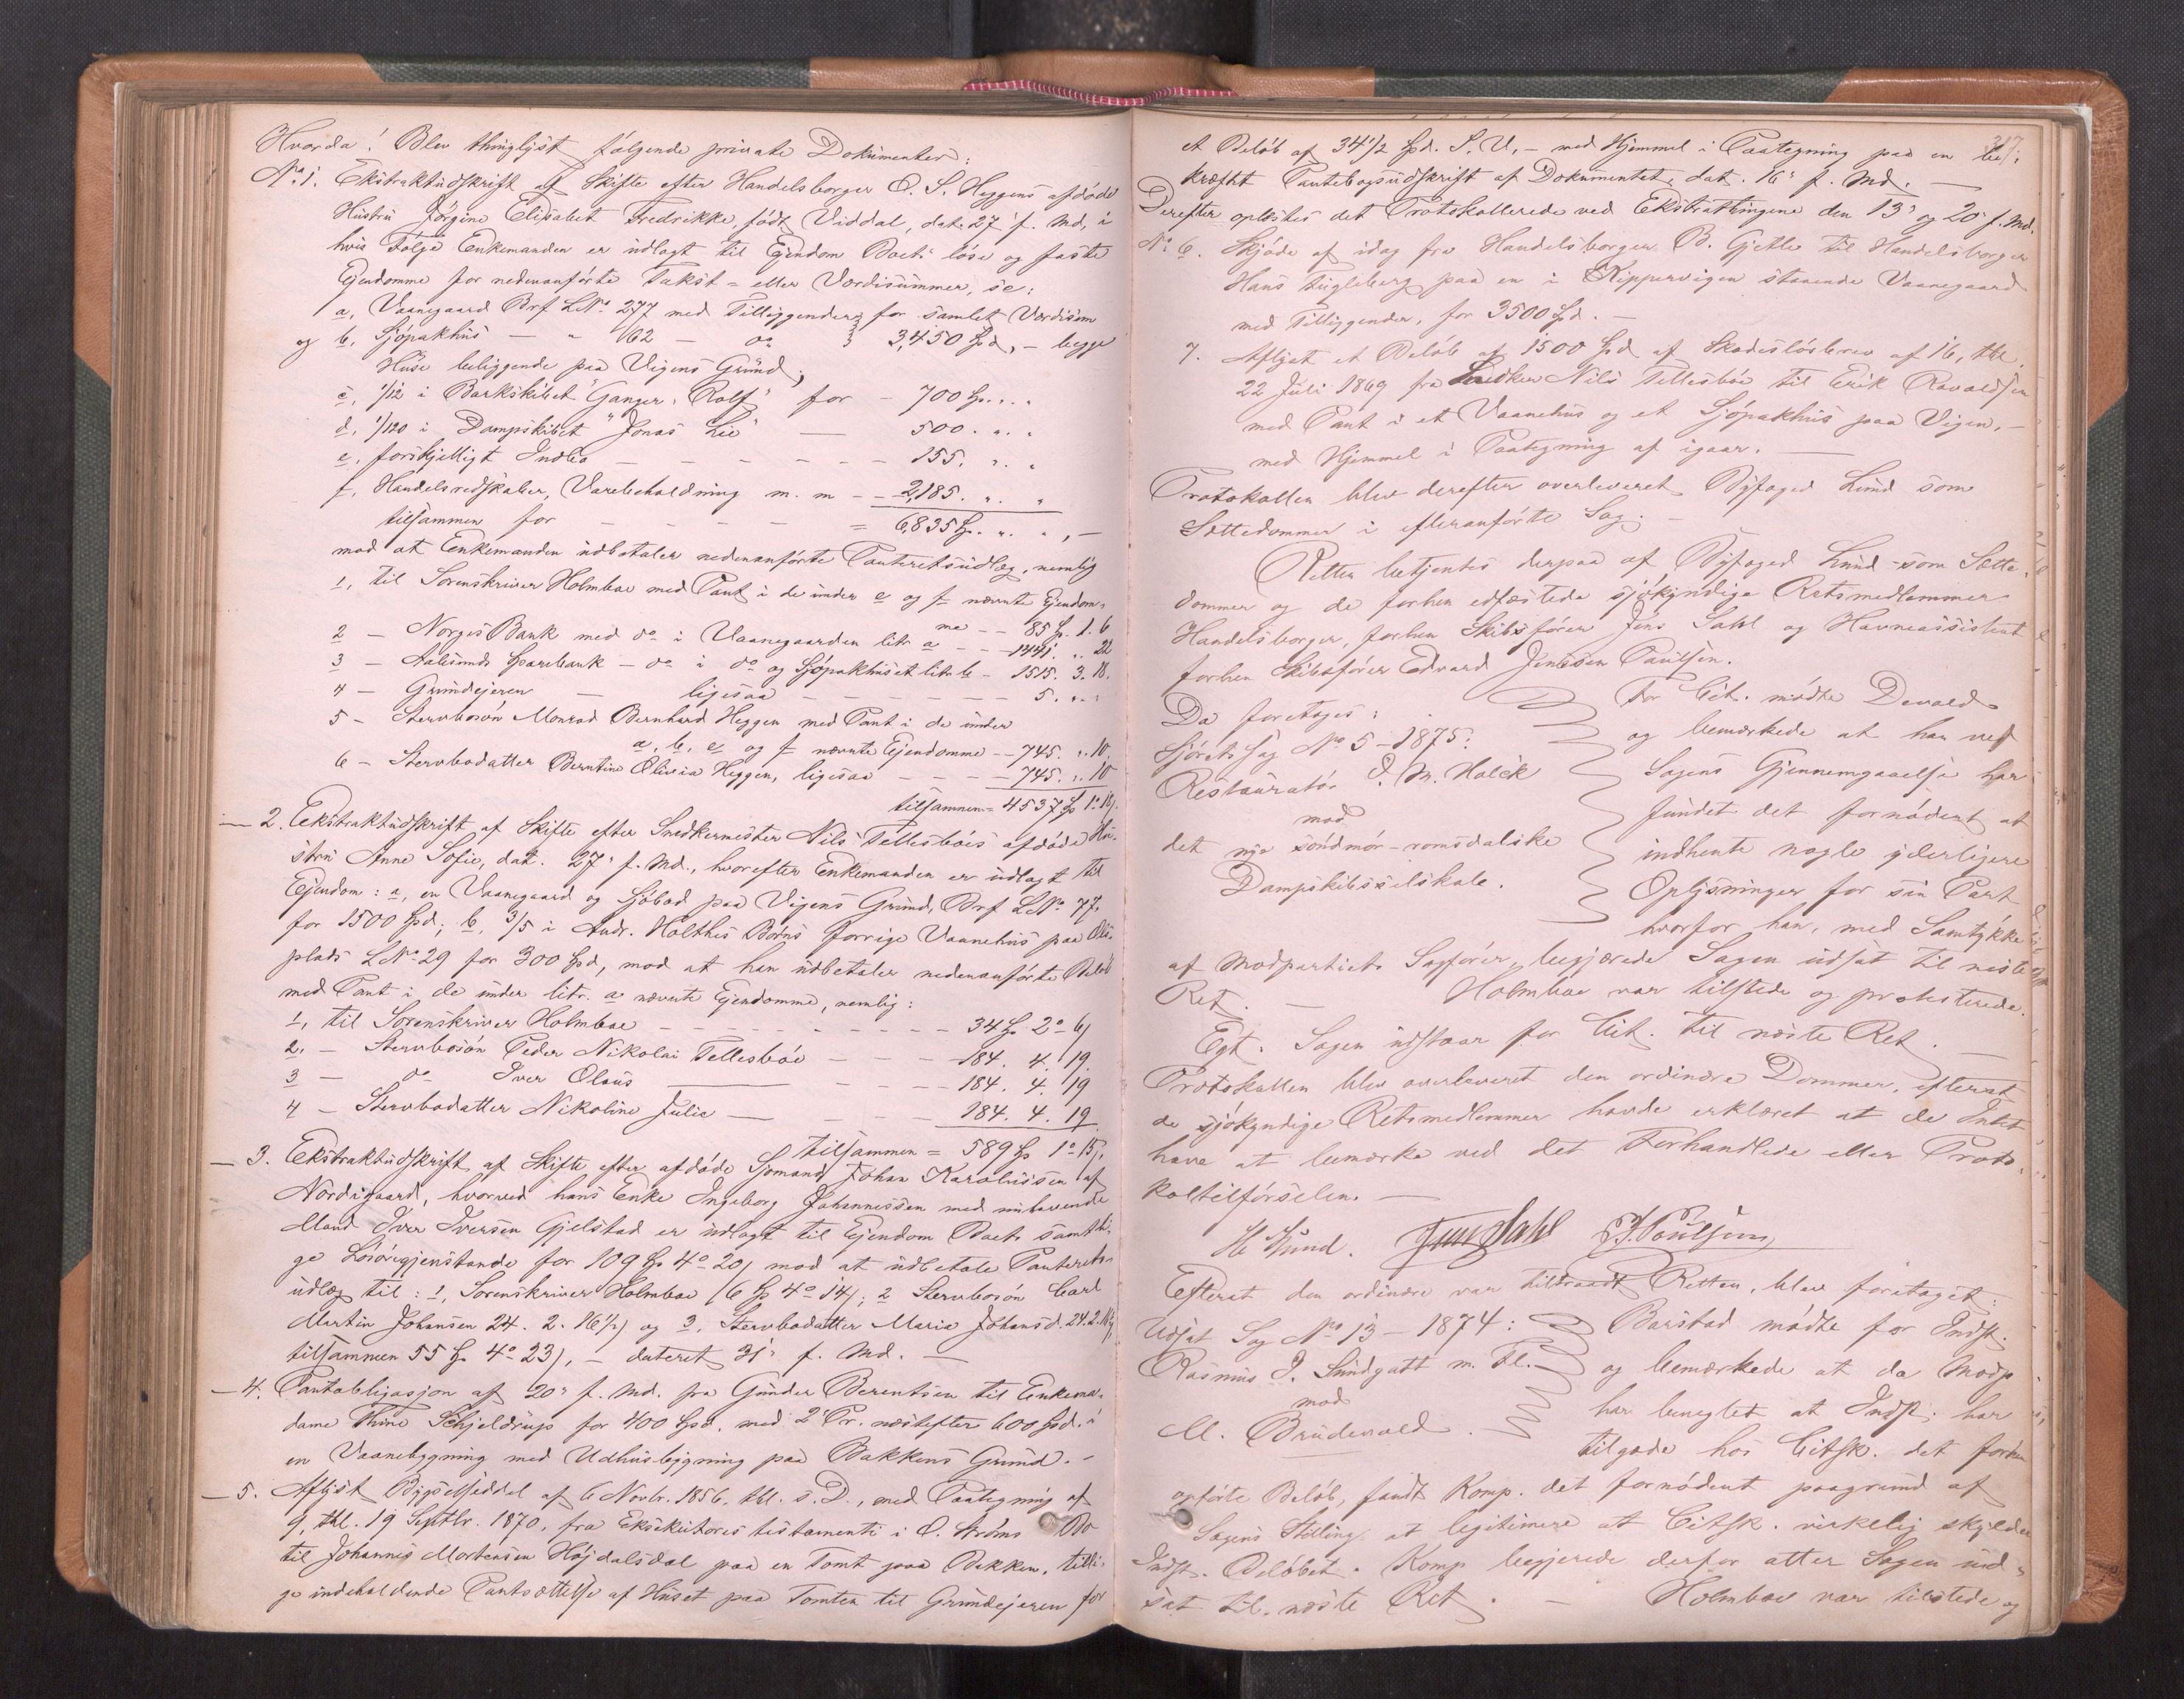 Hvorda! Blev thinglyst følgende private Dokumenter:
No. 1. Ekstraktudskrift af Skifte efter Handelsborger O. S. Heggens afdøde
Hustru Jørgine Elisabet Fredrikke, født Viddal, dat. 27' f. Md, i
hvis Følge Enkemanden er udlagt til Ejendom Boets løse og faste
Ejendomme for nedenanførte Takst- eller Værdisummer, se:
a, Vaanegaard Brf LNo. 277 med Tilliggender for samlet Værdisum
og b, Sjøpakhus — " 162 — do 3,450 Spd, — begge
Huse beliggende paa Vigens Grund;
c, 1/12 i Barkskibet "Ganger Rolf" for — 700 Sp. " "
d, 1/120 i Dampskibet "Jonas Lie" — 500. " "
e, forskjelligt Indbo — — — — — 155. " "
f, Handelsredskaber, Varebeholdning m. m — 2,185. " "
tilsammen for — — — — = 6,835 Sp. " " , —
mod at Enkemanden udbetaler nedenanførte Panteretsudlæg, nemlig
1, til Sorenskriver Holmboe med Pant i de under e og f nævnte Ejendom-
me — 85 Sp. 1. 6
2 — Norges Bank med do i Vaanegaarden litr. a — — 1441. " 22
3 — Aalesunds Sparebank — do i do og Sjøpakhuset litr. b — 1515. 3. 18.
4 — Grundejeren — ligesaa — — — — 5. " "
5 — Stervbosøn Monrad Bernhard Heggen med Pant i de under
a, b, e og f nævnte Ejendomme — 745. " 10.
6 — Stervbodatter Berntine Olivia Heggen, ligesaa — — — 745. " 10
tilsammen = 4537 Sp 1 " 18).
— 2. Ekstraktudskrift af Skifte efter Snedkermester Nils Tellesbøes afdøde Hu-
stru Anne Sofie, dat. 27' f. Md., hvorefter Enkemanden er udlagt til
Ejendom: a, en Vaanegaard og Sjøbod paa Vigens Grund, Brf LNo. 77.
for 1500 Spd; b, 3/5 i Andr. Holthes Børns forrige Vaanehus paa
plads LNo. 29 for 300 Spd, mod at han udbetaler nedenanførte Beløb
med Pant i de under litr. a nævnte Ejendomme, nemlig:
1, til Sorenskriver Holmboe — — — — — 34 Sp 2 " 6)
2. — Stervbosøn Peder Nikolai Tellesbøe — — — 184. 4. 19.
3 — do Iver Olaus — — — 184. 4. 19
4 — Stervbodatter Nikoline Julie — — — 184. 4. 19.
tilsammen = 589 Sp 1 " 15).
— 3. Ekstraktudskrift af Skifte efter afdøde Sjømand Johan Karolussen af
Nørdigaard, hvorved hans Enke Ingeborg Johannessen med nulevende
Mand Iver Iversen Gjelstad er udlagt til Ejendom Boets samtli-
ge Løsøregjenstande for 109 Sp 4 " 20) mod at udbetale Panterets-
udlæg til: 1, Sorenskriver Holmboe (6 Sp 4 " 14); 2 Stervbosøn Carl
Martin Johansen 24. 2. 16½) og 3, Stervbodatter Maria Johansd. 24. 2. 16½,
tilsammen 55 Sp 4 " 23), — dateret 31' f. Md. —
— 4. Pantobligasjon af 20' f. Md. fra Gunder Berentsen til Enkema-
dame Thrine Schjelderup for 400 Spd. med 2' Pr. næstefter 600 Spd. i
en Vaanebygning med Udhusbygning paa Bakkens Grund. —
— 5. Aflyst Bygselseddel af 6 Novbr. 1856, thl. s. D., med Paategning af
9, thl. 19 Septbr. 1870, fra Eksekutores testamenti i O. Strøms Bo
til Johannes Mortensen Højdalsdal paa en Tomt paa Bakken, tilli-
ge indeholdende Pantsættelse af Huset paa Tomten til Grundejeren for
317
et Beløb af 34½ Spd. S. V, — med Hjemmel i Paategning paa en be-
kræftet Pantebogsudskrift af Dokumentet, dat. 16' f. Md. —
Derefter oplæstes det Protokollerede ved Ekstrathingene den 13' og 20' f. Md.
No. 6. Skjøde af idag fra Handelsborger B. Gjetle til Handelsborger
Hans Fugleberg paa en i Kippervigen staaende Vaanegaard
med Tilliggender, for 3500 Spd. —
7. Aflyst et Beløb af 1500 Spd af Skadesløsbrev af 16, thl.
22 Juli 1869 fra Snedker Nils Tellesbøe til Erik Ravaldsen
med Pant i et Vaanehus og et Sjøpakhus paa Vigen, —
med Hjemmel i Paategning af igaar. —
Protokollen blev derefter overleveret Byfoged Lund som
Sættedommer i efteranførte Sag: —
Retten betjentes derpaa af Byfoged Lund som Sætte-
dommer og de forhen edfæstede sjøkyndige Retsmedlemmer
Handelsborger, forhen Skibsfører Jens Dahl og Havneassistent
forhen Skibsfører Edvard Jentssen Paulsen.
Da foretages:
Sjørets Sag No 5 — 1875:
Restauratør I. M. Holck
mod
det nye søndmør-romsdalske
Dampskibsselskab.
For Cit. mødte Devold
og bemærkede at han ved
Sagens Gjennemgaaelse har
fundet det fornødent at
indhente nogle yderligere
Oplysninger for sin Part
hvorfor han, med Samtykke
af Modpartiets Sagfører, begjærede Sagen udsat til neste
Ret. — Holmboe var tilstede og protesterede.
Egt. Sagen udstaar for Cit. til næste Ret. —
Protokollen blev overleveret den ordinære Dommer, efterat
de sjøkyndige Retsmedlemmer havde erklæret at de Intet
have at bemærke ved det Forhandlede eller Proto-
koltilførselen. —
H Lund. Jens Dahl E J Poulsen
Efterat den ordinære var tiltraadt Retten, blev foretaget:
Udsat Sag No 13 — 1874:
Rasmus J. Sundgott m. Fl.
mod
M. Brudevold.
Barstad mødte for Indst.
og bemærkede at da Modp
har benegtet at Indst. har
tilgode hos Citsk. det forhen
opførte Beløb, fandt Komp. det fornødent paagrund af
Sagens Stilling at legitimere at Citsk. virkelig skylder
Indst. Beløbet. Komp. begjerede derfor atter Sagen ud-
sat til næste Ret. — Holmboe var tilstede og